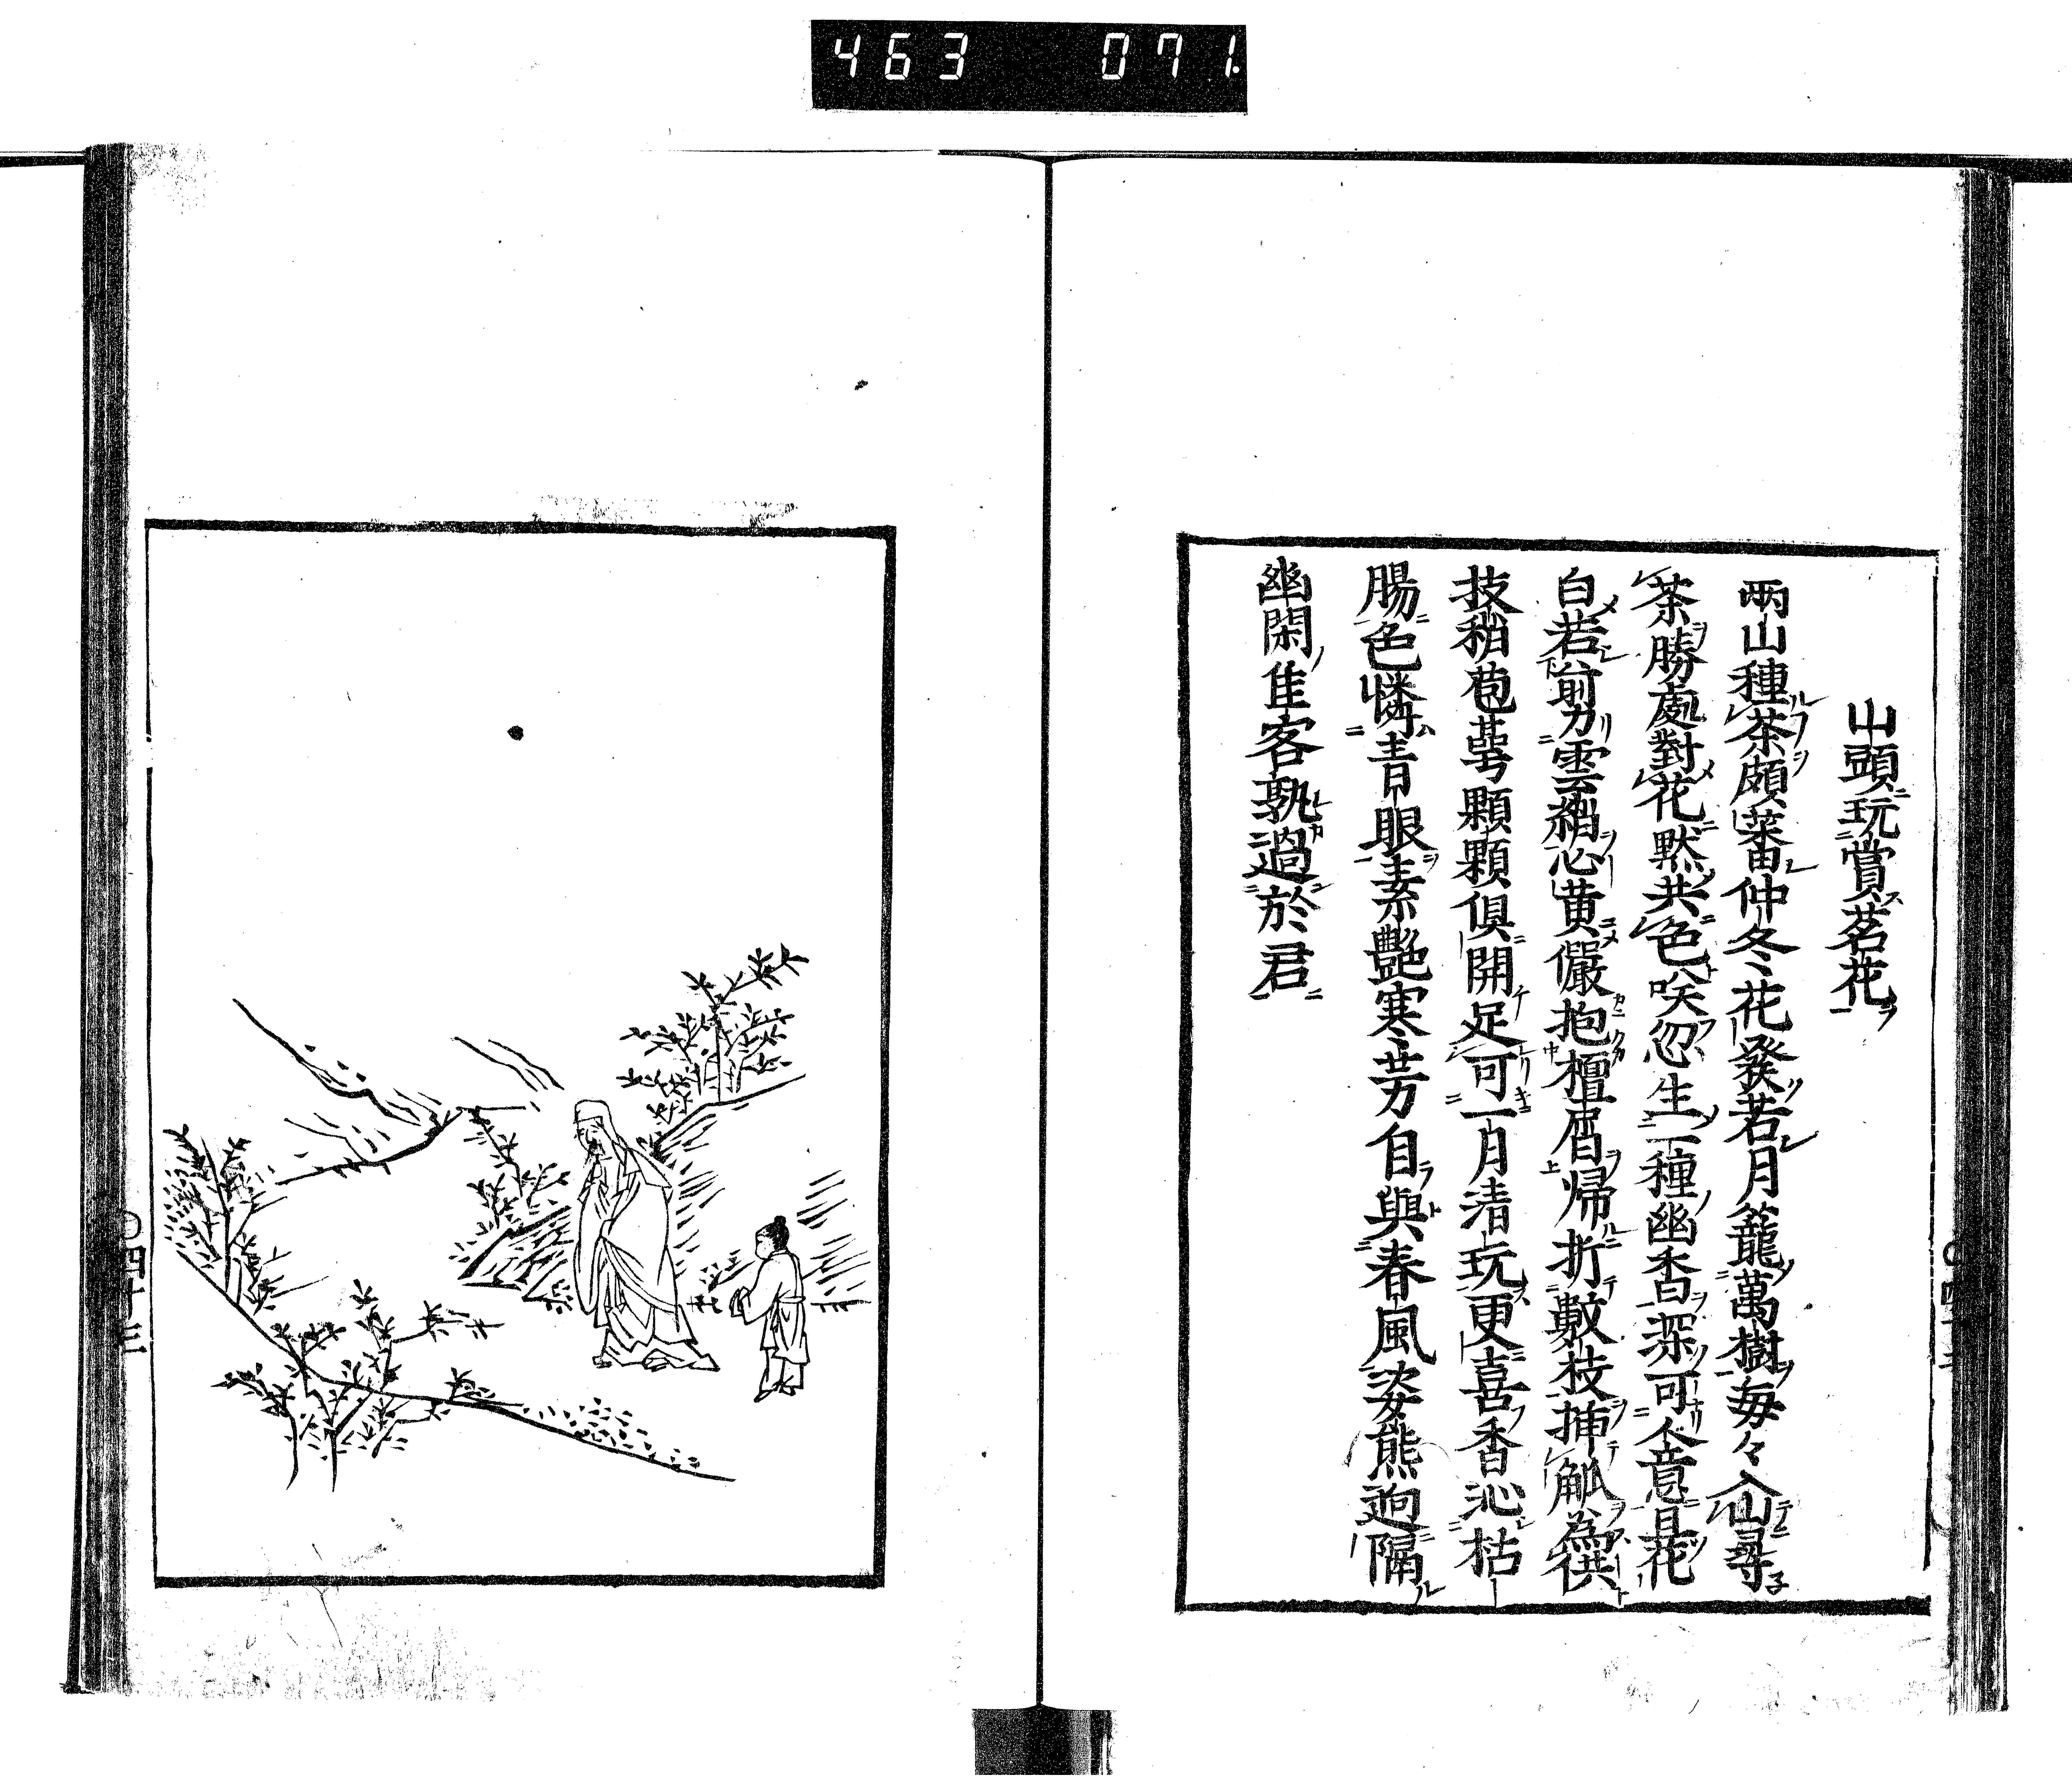 463 071
山頭玩賞茗花
兩山種茶頗葘仲冬花發若月籠萬樹每々入山尋
茶勝處對花默共色咲忽生一種幽香深可人意且花
白若剪雲綃心黃儼抱檀屑帰折數枝挿觚為供
技稍苞萼顆顆俱開足可一月清玩更喜香沁枯
腸色憐青眼素艷寒芳自與春風姿熊迥隔
幽閑佳客孰過於君
〇四十三